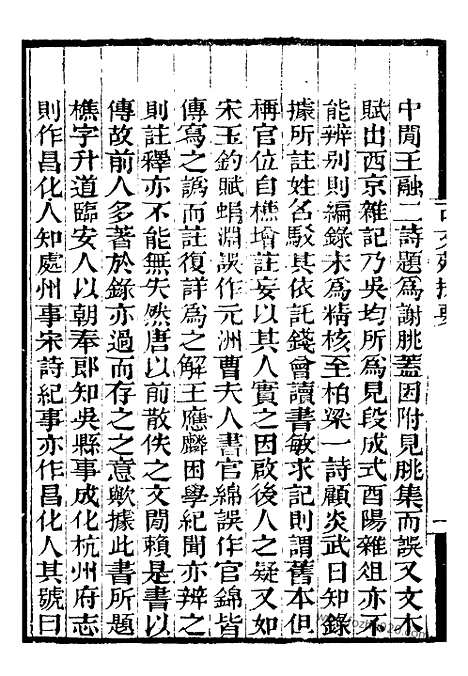 中閒王融二詩題爲謝朓蓋因附見朓集而誤又文木
賦出西京雜記乃吳均所爲見段成式酉陽雜俎亦不
能辨别則編錄未爲精核至柏梁一詩顧炎武日知錄
據所註姓名駁其依託錢曾讀書敏求記則謂舊本但
稱官位自樵增註妄以其人實之因啟後人之疑又如
宋玉釣賦蜎淵誤作元洲曹夫人書官綿誤作官錦皆
傳寫之譌而註復詳爲之解王應麟困學紀聞亦辨之
則註釋亦不能無失然唐以前散佚之文閒賴是書以
傳故前人多著於錄亦過而存之之意歟據此書所題
樵字升道臨安人以朝奉郎知吳縣事成化杭州府志
則作昌化人知處州事宋詩紀事亦作昌化人其號曰